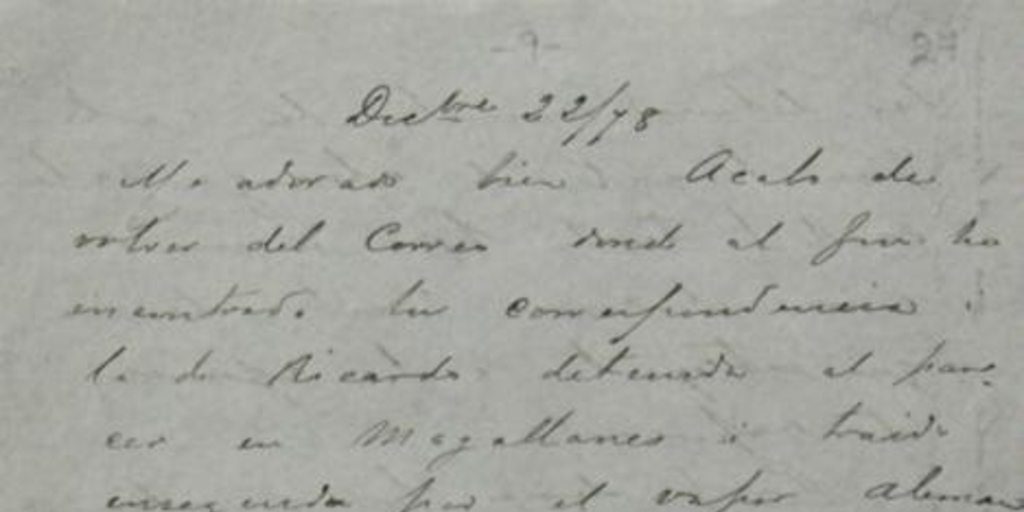 - 9 -
2
Dicbre 22/78
Mi adorado bien Acabo de
volver del Correo donde al fin he
encontrado tu correspondencia i
la de Ricardo detenida al pare-
cer en Magallanes i traida
enseguida por el vapor aleman